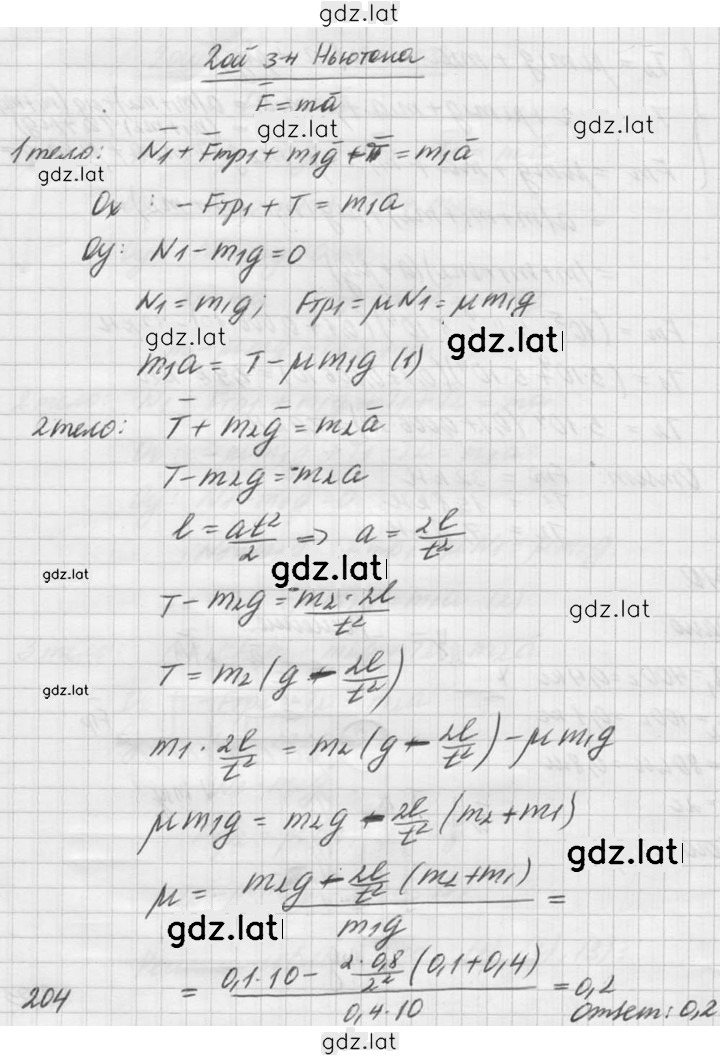 gdz.lat
2ой з-н Ньютона
F̄ = mā
gdz.lat
gdz.lat
1 тело: N̄1 + F̄тр1 + m1ḡ + T̄ = m1ā
gdz.lat
Ox : - Fтр1 + T = m1a
Oy: N1 - m1g = 0
N1 = m1g; Fтр1 = μN1 = μm1g
gdz.lat
gdz.lat
m1a = T - μm1g (1)
2 тело: T̄ + m2ḡ = m2ā
T - m2g = -m2a
l = at²/2 => a = 2l/t²
gdz.lat
gdz.lat
T - m2g = - m2·2l/t²
gdz.lat
T = m2(g - 2l/t²)
gdz.lat
m1 · 2l/t² = m2(g - 2l/t²) - μm1g
μm1g = m2g - 2l/t² (m2 + m1)
gdz.lat
μ = (m2g - 2l/t² (m2 + m1))/m1g =
gdz.lat
= (0,1·10 - 2·0,8/2² (0,1 + 0,4))/0,4·10 = 0,2
204
Ответ: 0,2
gdz.lat